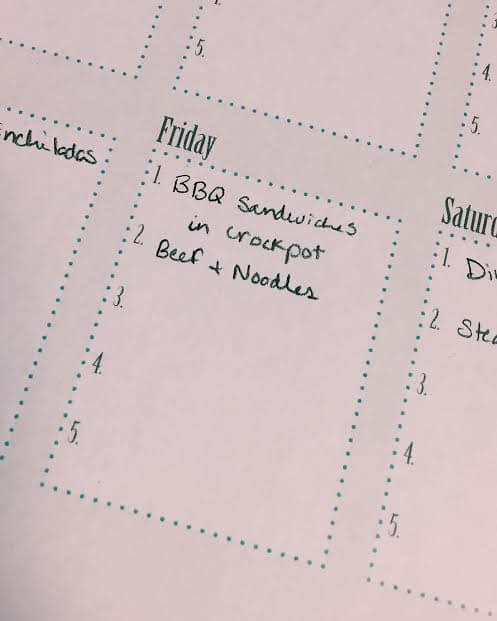 5.
4.
5.
Enchiladas
Friday
1. BBQ Sandwiches
in crockpot
2. Beef + Noodles
3.
4.
5.
1.
2.
3.
4.
5.